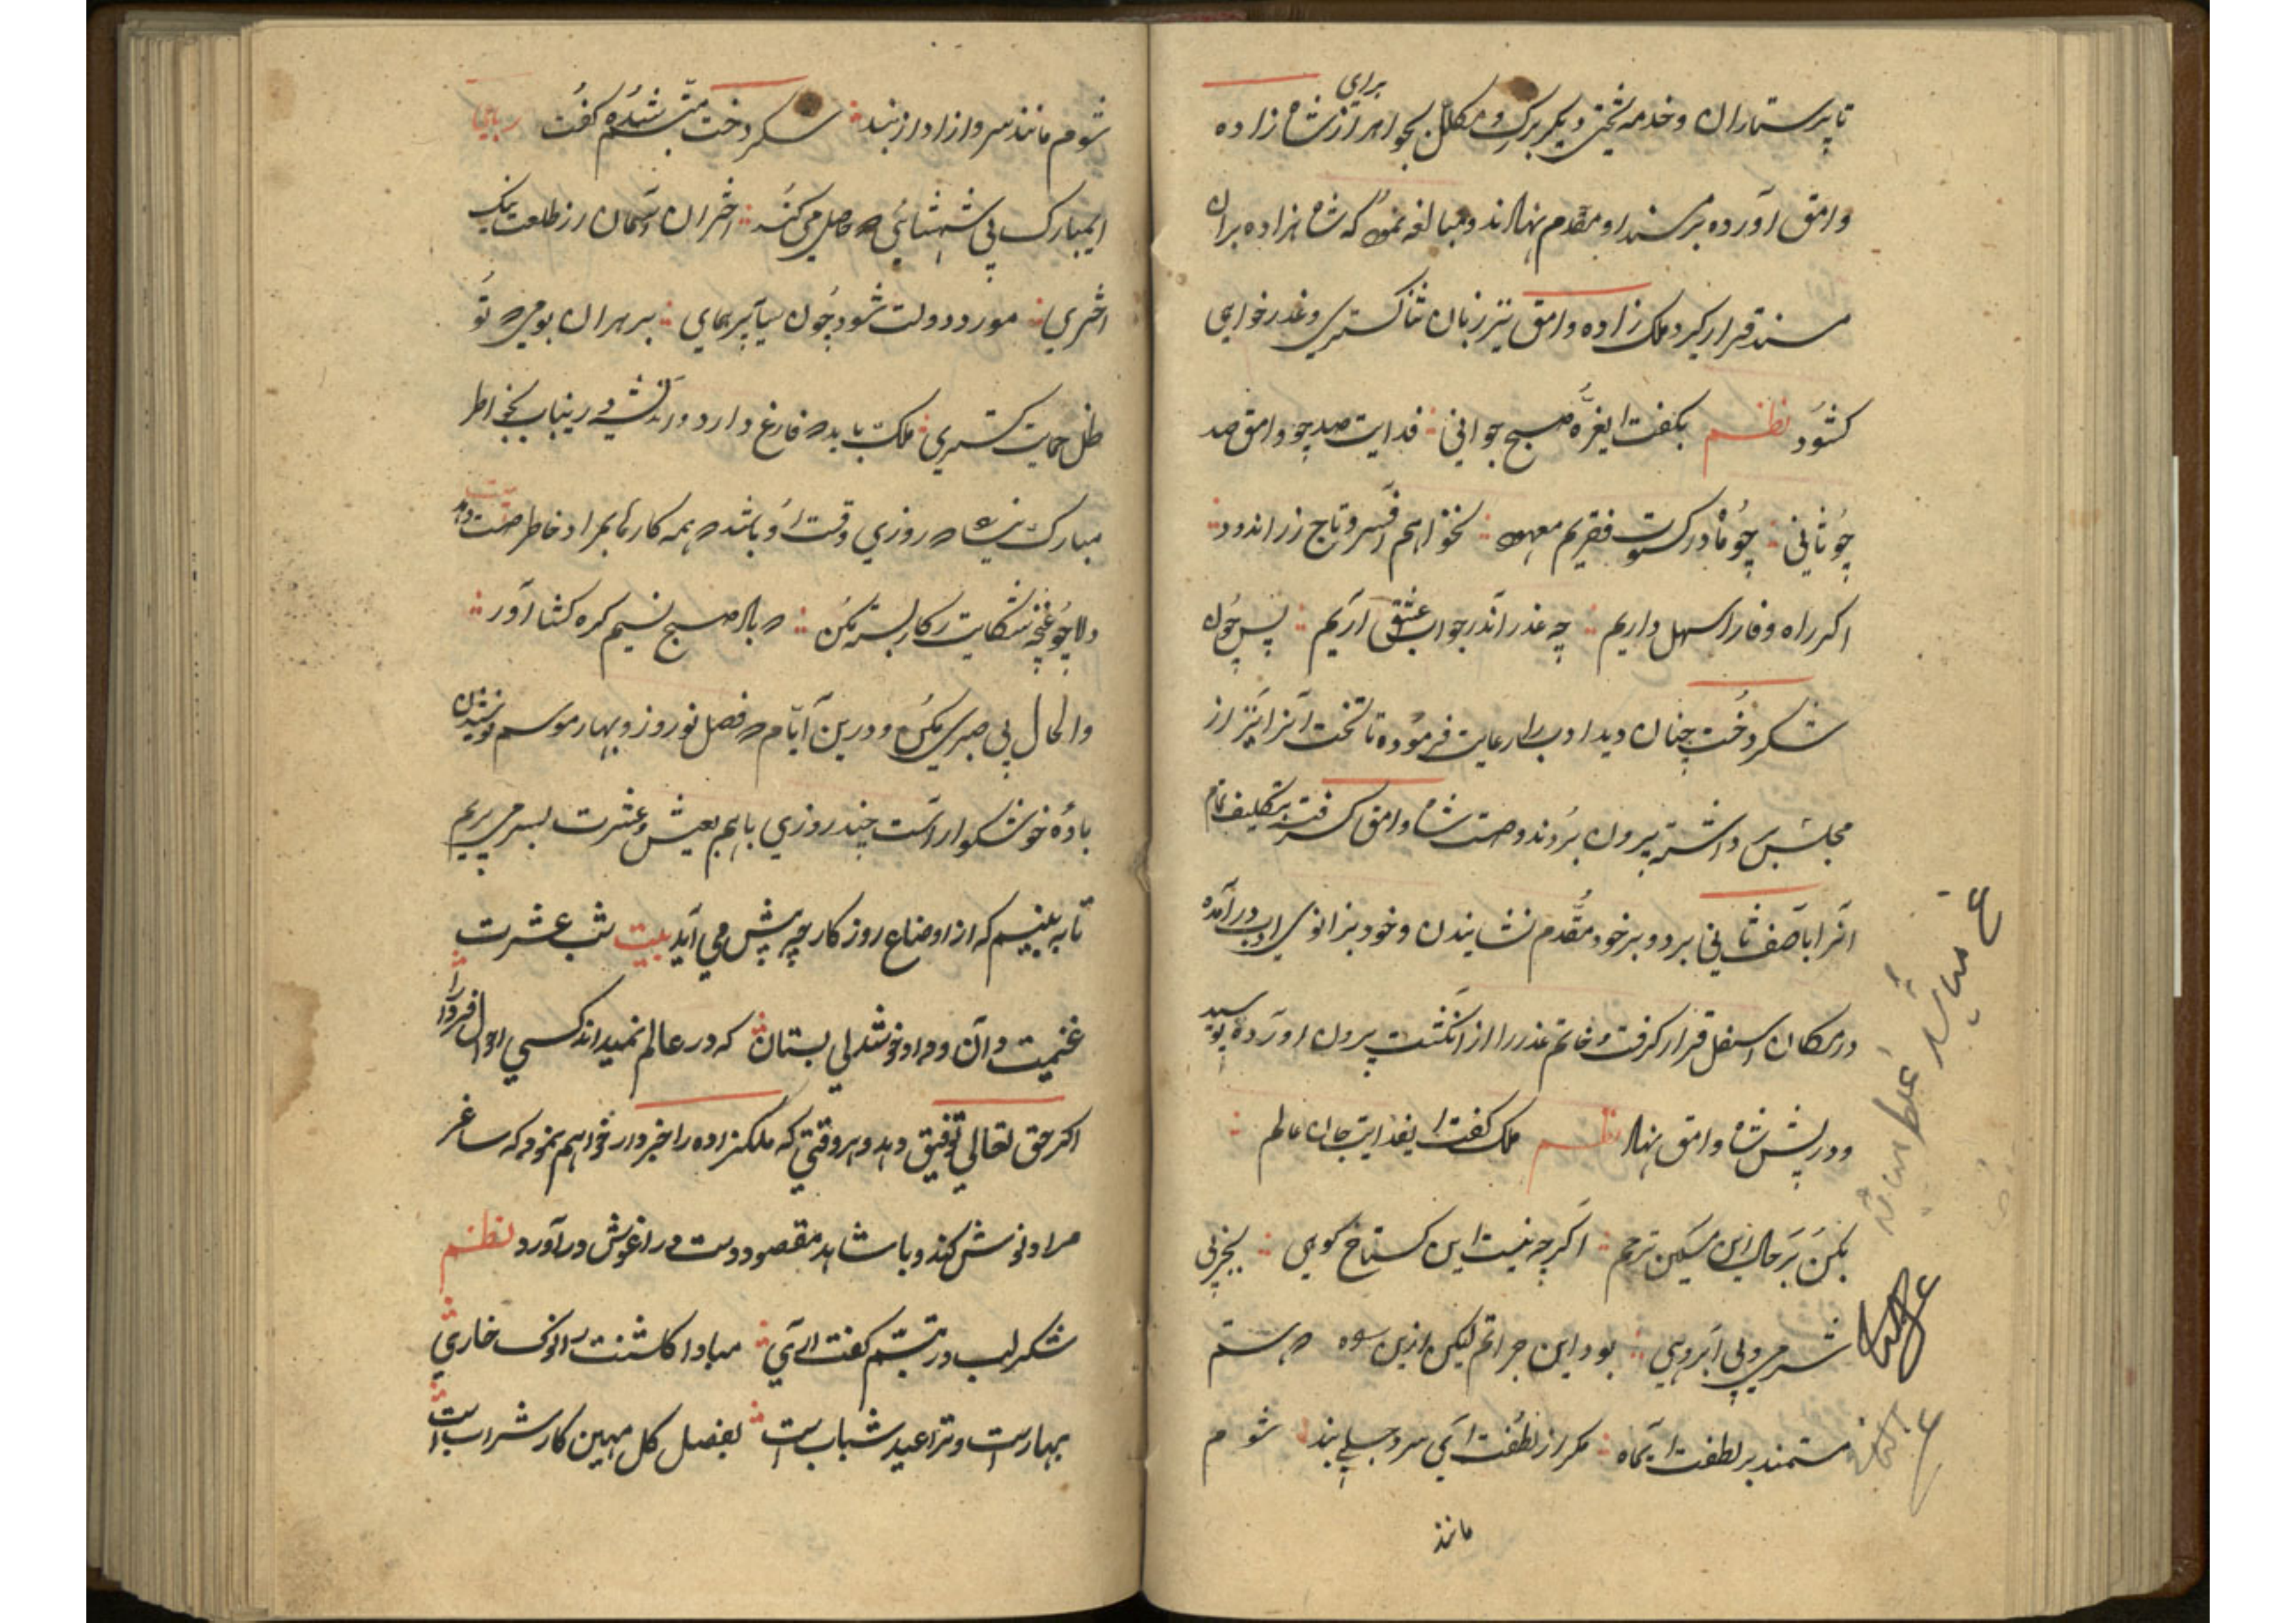 برای
تا پرستاران و خدمه تختی دیگر بزرک و مکلل بجواهر از شاه زاده
وامق آورده بر مسند او مقدم نهادند و مبالغه نمود که شاهزاده بران
مسند قرار کیرد ملک زاده وامق نیز زبان ثنا کستری و عذر خواهی
کشود نظم بکفت ای غره صبح جوانی فدایت صد چو وامق صد
چو ثانی چو ما در کسوت فقریم معهود نخواهم افسر و تاج زر اندود
اکر راه وفا را سهل داریم چه عذر اندر جواب عشق آریم پس چون
شکر دخت چنان دید ادب را رعایت فرموده تا تخت آنرا نیز از
مجلس برداشته بیرون بردند و دست شاه وامق کرفته بتکلیف تمام
آنرا با آصف ثانی برد و بر خود مقدم نشانیدن و خود بزانوی ادب در آمده
در مکان اسفل قرار کرفت و خاتم عذرا را از انکشت بیرون آورده بوسید
و در پیش شاه وامق نهاد نظم ملک کفت ای فدایت جان عالم
بکن بر حال این مسکین ترحم اکر چه نیست این کستاخ کویی بجز بی
شرمی و بی آبرویی بود این جراتم لیکن ازین سود که هستم
مستمند بر لطفت ای ماه مکر از لطفت ای سرو شوم
مانند
شوم مانند سرو ازاد از بند شکر دخت متبسم شده کفت رباعی
ای مبارک پی شهنشاهی که حاصل می کند اختران آسمان از طلعت نیک
اختری مورد دولت شود چون سایه پر همای بر هر ان بومی که تو
ظل حمایت کستری ملک باید که فارغ دارد و اندیشه درینباب بخواطر
مبارک نرساند که روزی وقت او باشد که همه کارها بمراد خاطر دست دهد بیت
دلا چو غنچه شکایت ز کار بسته مکن که باد صبح نسیم کره کشا آورد
والحال بی صبری مکن و درین ایام که فصل نوروز و بهار موسم نوشیدن
باده خوشکوار است چند روزی باهم بعیش و عشرت بسر می بریم
تا به بینیم که از اوضاع روزکار چه پیش می آید بیت شب عشرت
غنیمت دان و داد خوشدلی بستان که در عالم نمیداند کسی احوال فردا را
اکر حق تعالی توفیق دهد و هر وقتی که ملکزاده را خبر دار خواهم نمود که ساغر
مراد نوش کند و با شاهد مقصود دست در اغوش در آورد نظم
شکر لب در تبسم کفت آری مبادا کلشنت را نوک خاری
بهارست و ترا عید شباب است بفصل کل مهین کار شراب است